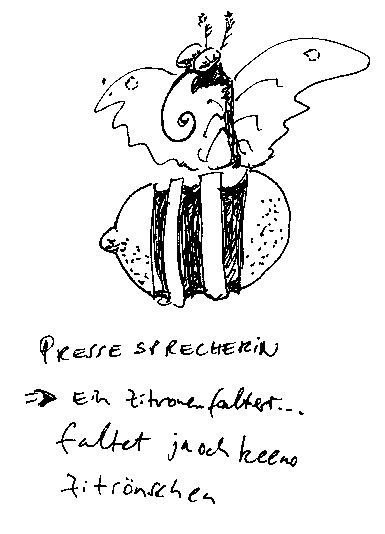 PRESSE SPRECHERIN
⇒ Ein Zitronenfalter...
faltet ja och keene
Zitrönschen